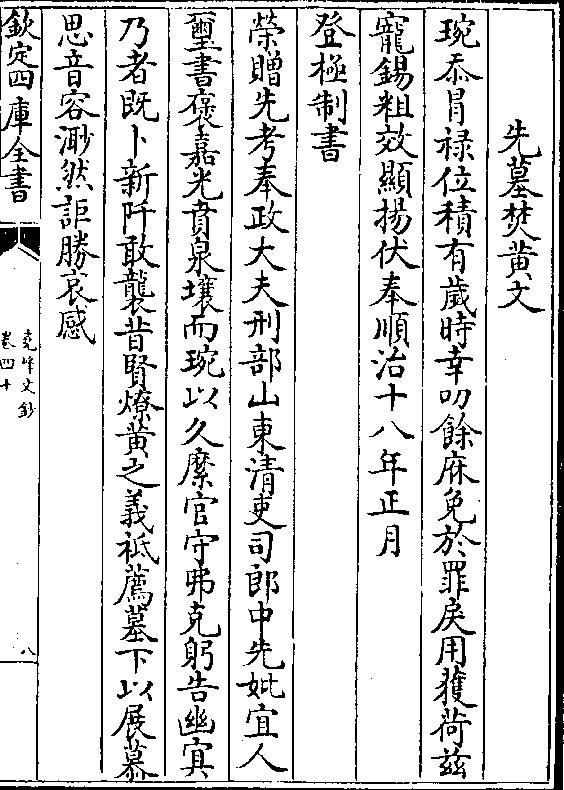 先墓焚黄文
琬忝冐禄位積有歲時幸叨餘庥免於罪戾用獲荷兹
寵錫粗效顯揚伏奉順治十八年正月
登極制書
榮贈先考奉政大夫刑部山東清吏司郎中先妣宜人
璽書褒嘉光賁泉壤而琬以久縻官守弗克躬告幽㝠
乃者既卜新阡敢襲昔賢燎黄之義祗薦墓下以展慕
思音容渺然詎勝哀感
欽定四庫全書
堯峰文鈔
卷四十
八